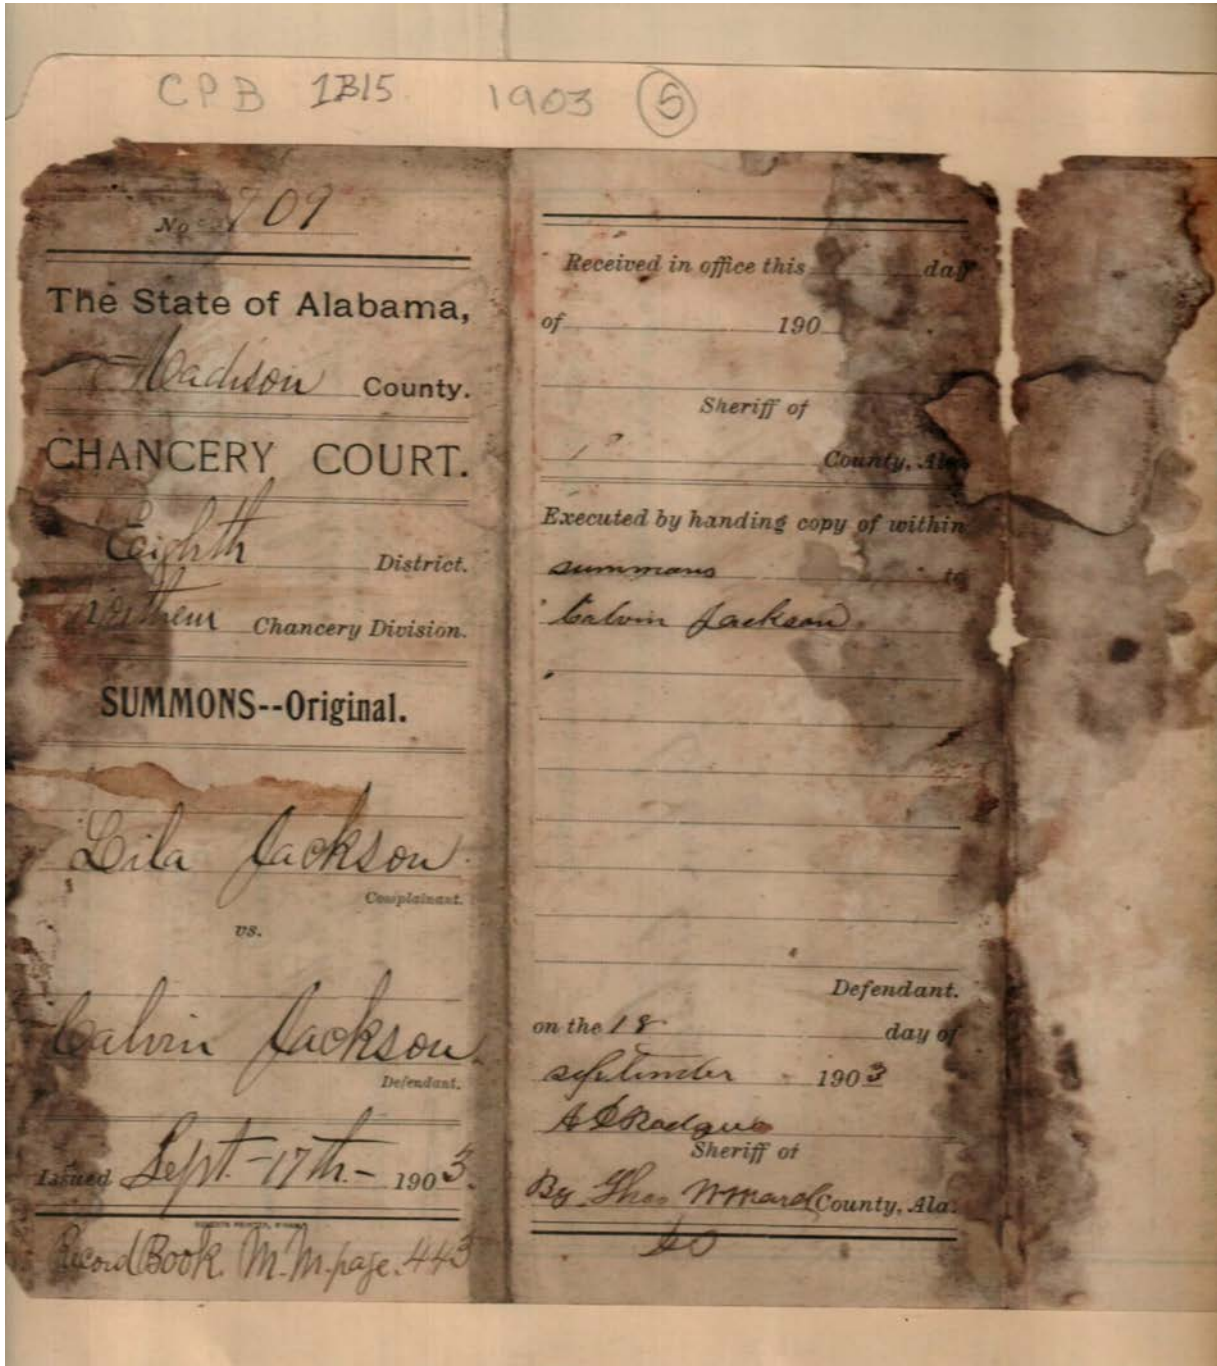 CPB 1B15 1903 5
No 909
The State of Alabama,
Madison County.
CHANCERY COURT.
Eighth District.
Northern Chancery Division.
SUMMONS--Original.
Lila Jackson
Complainant.
vs.
Calvin Jackson
Defendant.
Issued Sept. 17th. 1903.
Record Book. M.M. page. 443
Received in office this day
of 190
Sheriff of
County, Ala
Executed by handing copy of within
summons to
Calvin Jackson
Defendant.
on the 18 day of
september 1903
Sheriff of
By County, Ala.